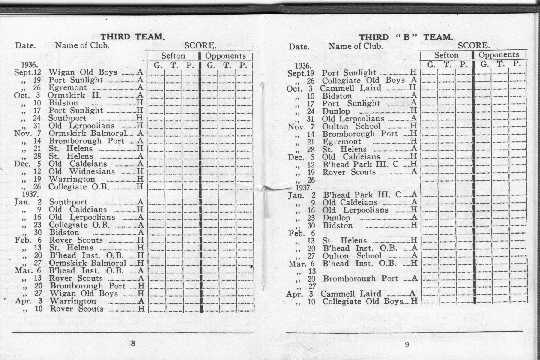 THIRD TEAM.
Date. Name of Club. SCORE.
Sefton Opponents
G. T. P. G. T. P.
1936.
Sept.12 Wigan Old Boys A
„ 19 Port Sunlight A
„ 26 Egremont A
Oct. 3 Ormskirk II. A
„ 10 Bidston H
„ 17 Port Sunlight H
„ 24 Southport H
„ 31 Old Lerpoolians H
Nov. 7 Ormskirk Balmoral A
„ 14 Bromborough Port A
„ 21 St. Helens H
„ 28 St. Helens A
Dec. 5 Old Caldeians A
„ 12 Old Widnesians H
„ 19 Warrington H
„ 26 Collegiate O.B. H
1937.
Jan. 2 Southport A
„ 9 Old Caldeians H
„ 16 Old Lerpoolians A
„ 23 Collegiate O.B. A
„ 30 Bidston A
Feb. 6 Rover Scouts H
„ 13 St. Helens H
„ 20 B'head Inst. O.B. H
„ 27 Ormskirk Balmoral H
Mar. 6 B'head Inst. O.B. A
„ 13 Rover Scouts A
„ 20 Bromborough Port H
„ 27 Wigan Old Boys H
Apr. 3 Warrington A
„ 10 Rover Scouts H
8
THIRD "B" TEAM.
Date. Name of Club. SCORE.
Sefton Opponents
G. T. P. G. T. P.
1936.
Sept.19 Port Sunlight H
„ 26 Collegiate Old Boys A
Oct. 3 Cammell Laird H
„ 10 Bidston A
„ 17 Port Sunlight A
„ 24 Dunlop H
„ 31 Old Lerpoolians A
Nov. 7 Oulton School H
„ 14 Bromborough Port H
„ 21 Egremont H
„ 28 St. Helens A
Dec. 5 Old Caldeians H
„ 12 B'head Park III. C H
„ 19 Rover Scouts A
„ 26
1937.
Jan. 2 B'head Park III. C A
„ 9 Old Caldeians A
„ 16 Old Lerpoolians H
„ 23 Dunlop A
„ 30 Bidston H
Feb. 6
„ 13 St. Helens H
„ 20 B'head Inst. O.B. A
„ 27 Oulton School A
Mar. 6 B'head Inst. O.B. H
„ 13
„ 20 Bromborough Port A
„ 27
Apr. 3 Cammell Laird A
„ 10 Collegiate Old Boys H
9